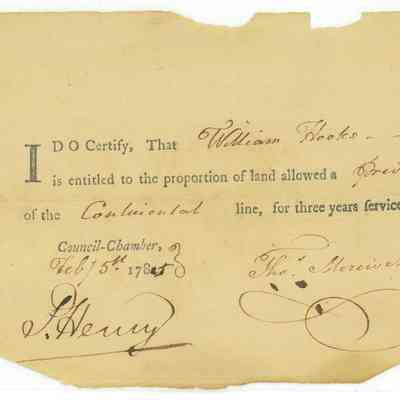 I DO Certify, That William Hooks
is entitled to the proportion of land allowed a
of the Continental line, for three years service
Council-Chamber,
Feby 5th 1785
Thos. Meriwe
P. Henry